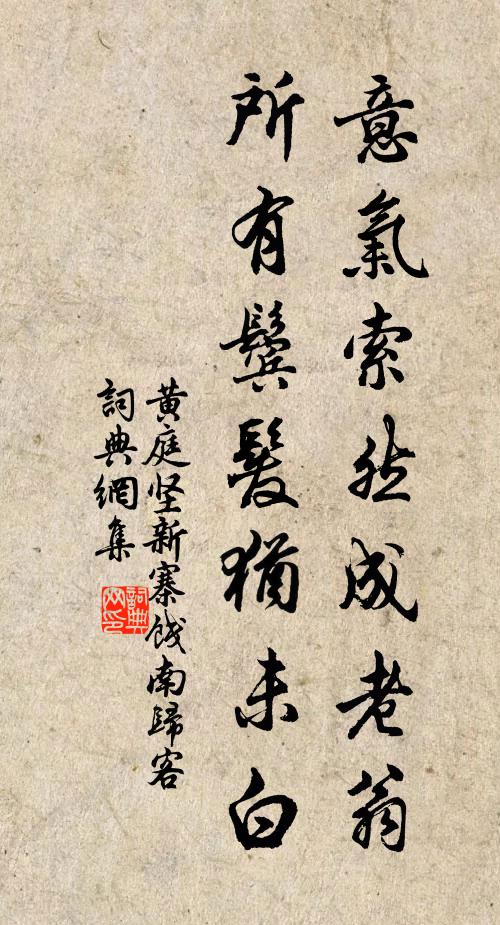 意氣索然成老翁
所有鬢髮猶未白
黃庭坚新寨餞南歸客
詞典網集
詞典網印